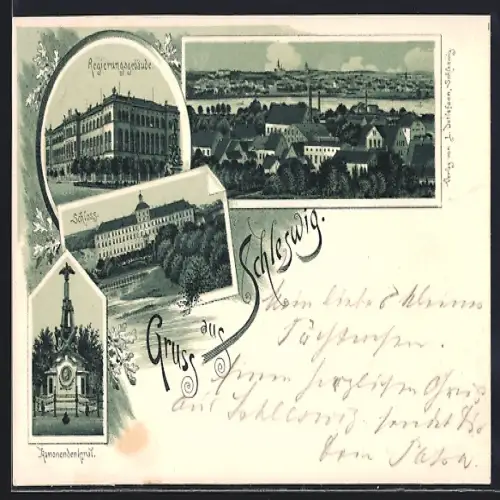 Regierungsgebäude.
Verlag von J. Detlefsen, Schleswig
Schloss.
Gruss aus Schleswig.
Mein liebes kleines
Töchterchen.
Einen herzlichen Gruß
aus Schleswig sendet Dir
Dein Papa.
Kanonendenkmal.